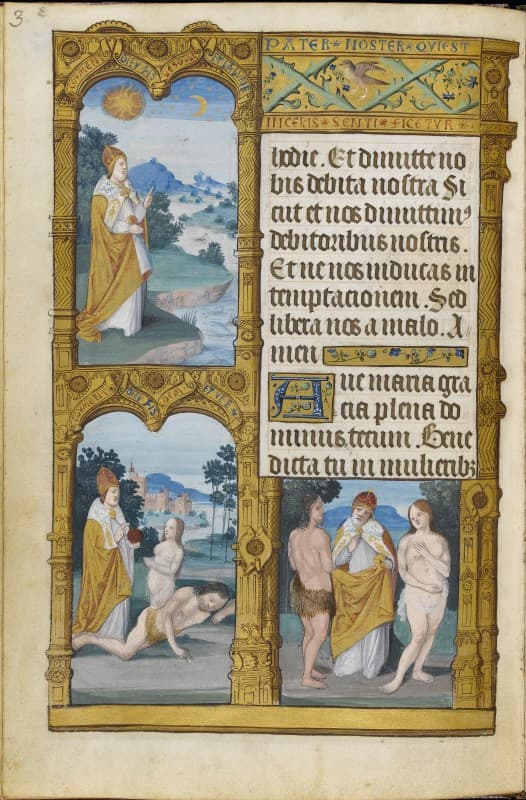 3
PATER * NOSTER * QVI EST
IN CELIS * SENTI * FICETVR
hodie. Et dimitte no
bis debita nostra Si
cut et nos dimittimꝰ
debitoribus nostris.
Et ne nos inducas in
temptacionem. Sed
libera nos a malo. A
men
Aue maria gra
cia plena do
minus tecum. Bene
dicta tu in mulieribꝫ